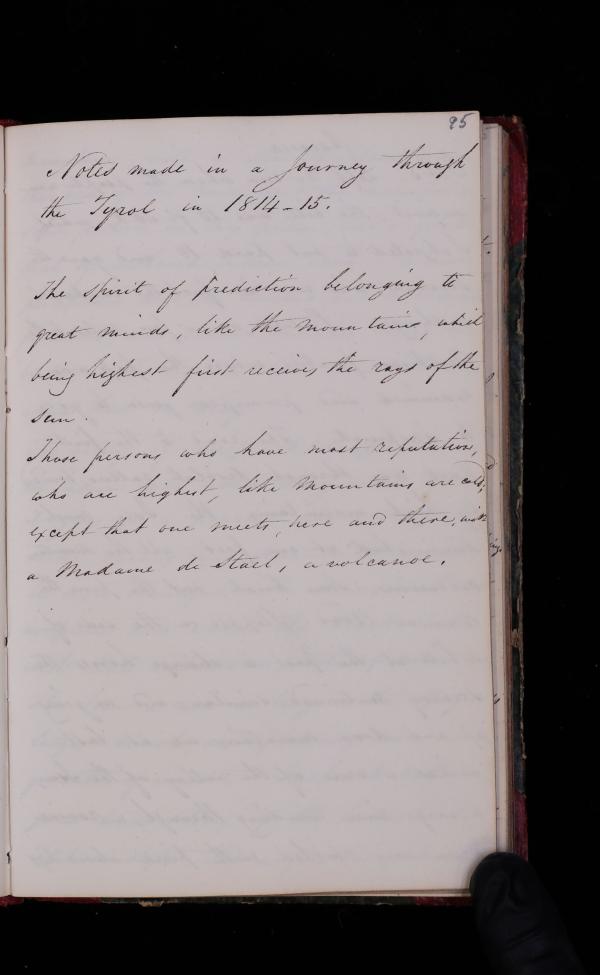 95
Notes made in a Journey through
the Tyrol in 1814-15.
The spirit of prediction belonging to
great minds, like the mountains, which
being highest first receives the rays of the
sun.
Those persons who have most reputation,
who are highest, like mountains are cold,
except that one meets, here and there, with
a Madame de Stael, a volcano.